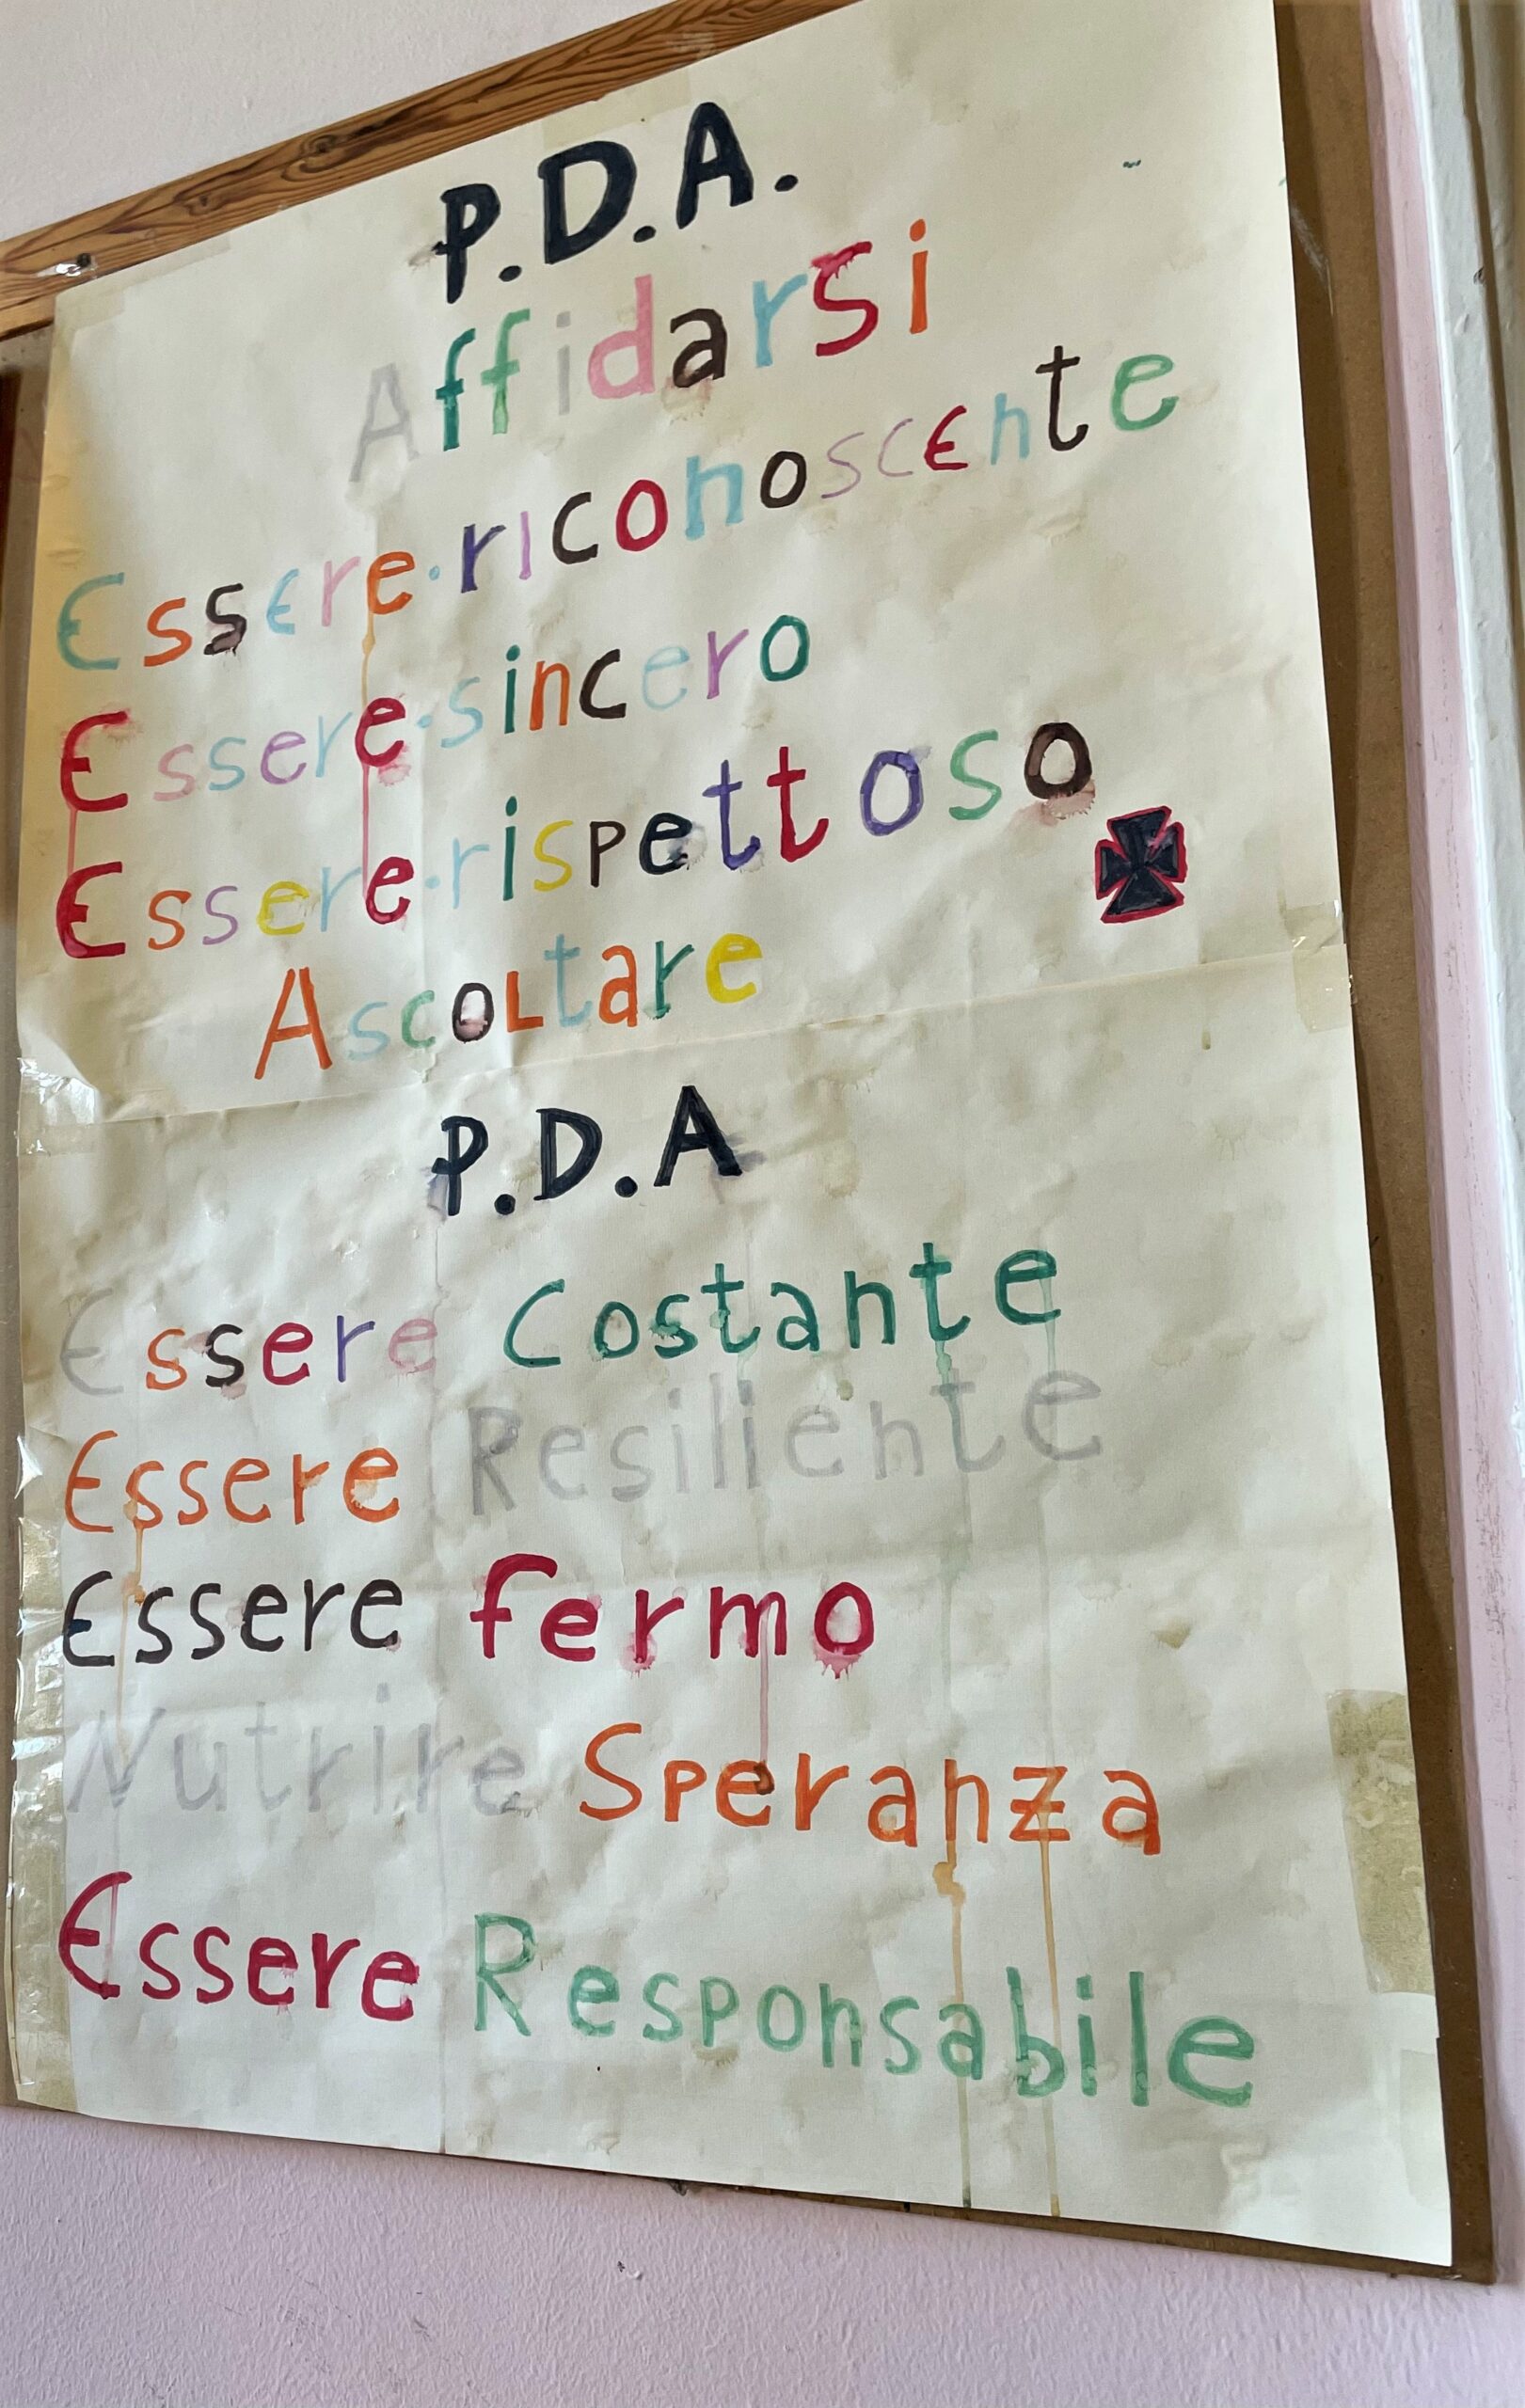 P.D.A.
Affidarsi
Essere·riconoscente
Essere·sincero
Essere·rispettoso
Ascoltare
P.D.A
Essere Costante
Essere Resiliente
Essere fermo
Nutrire Speranza
Essere Responsabile